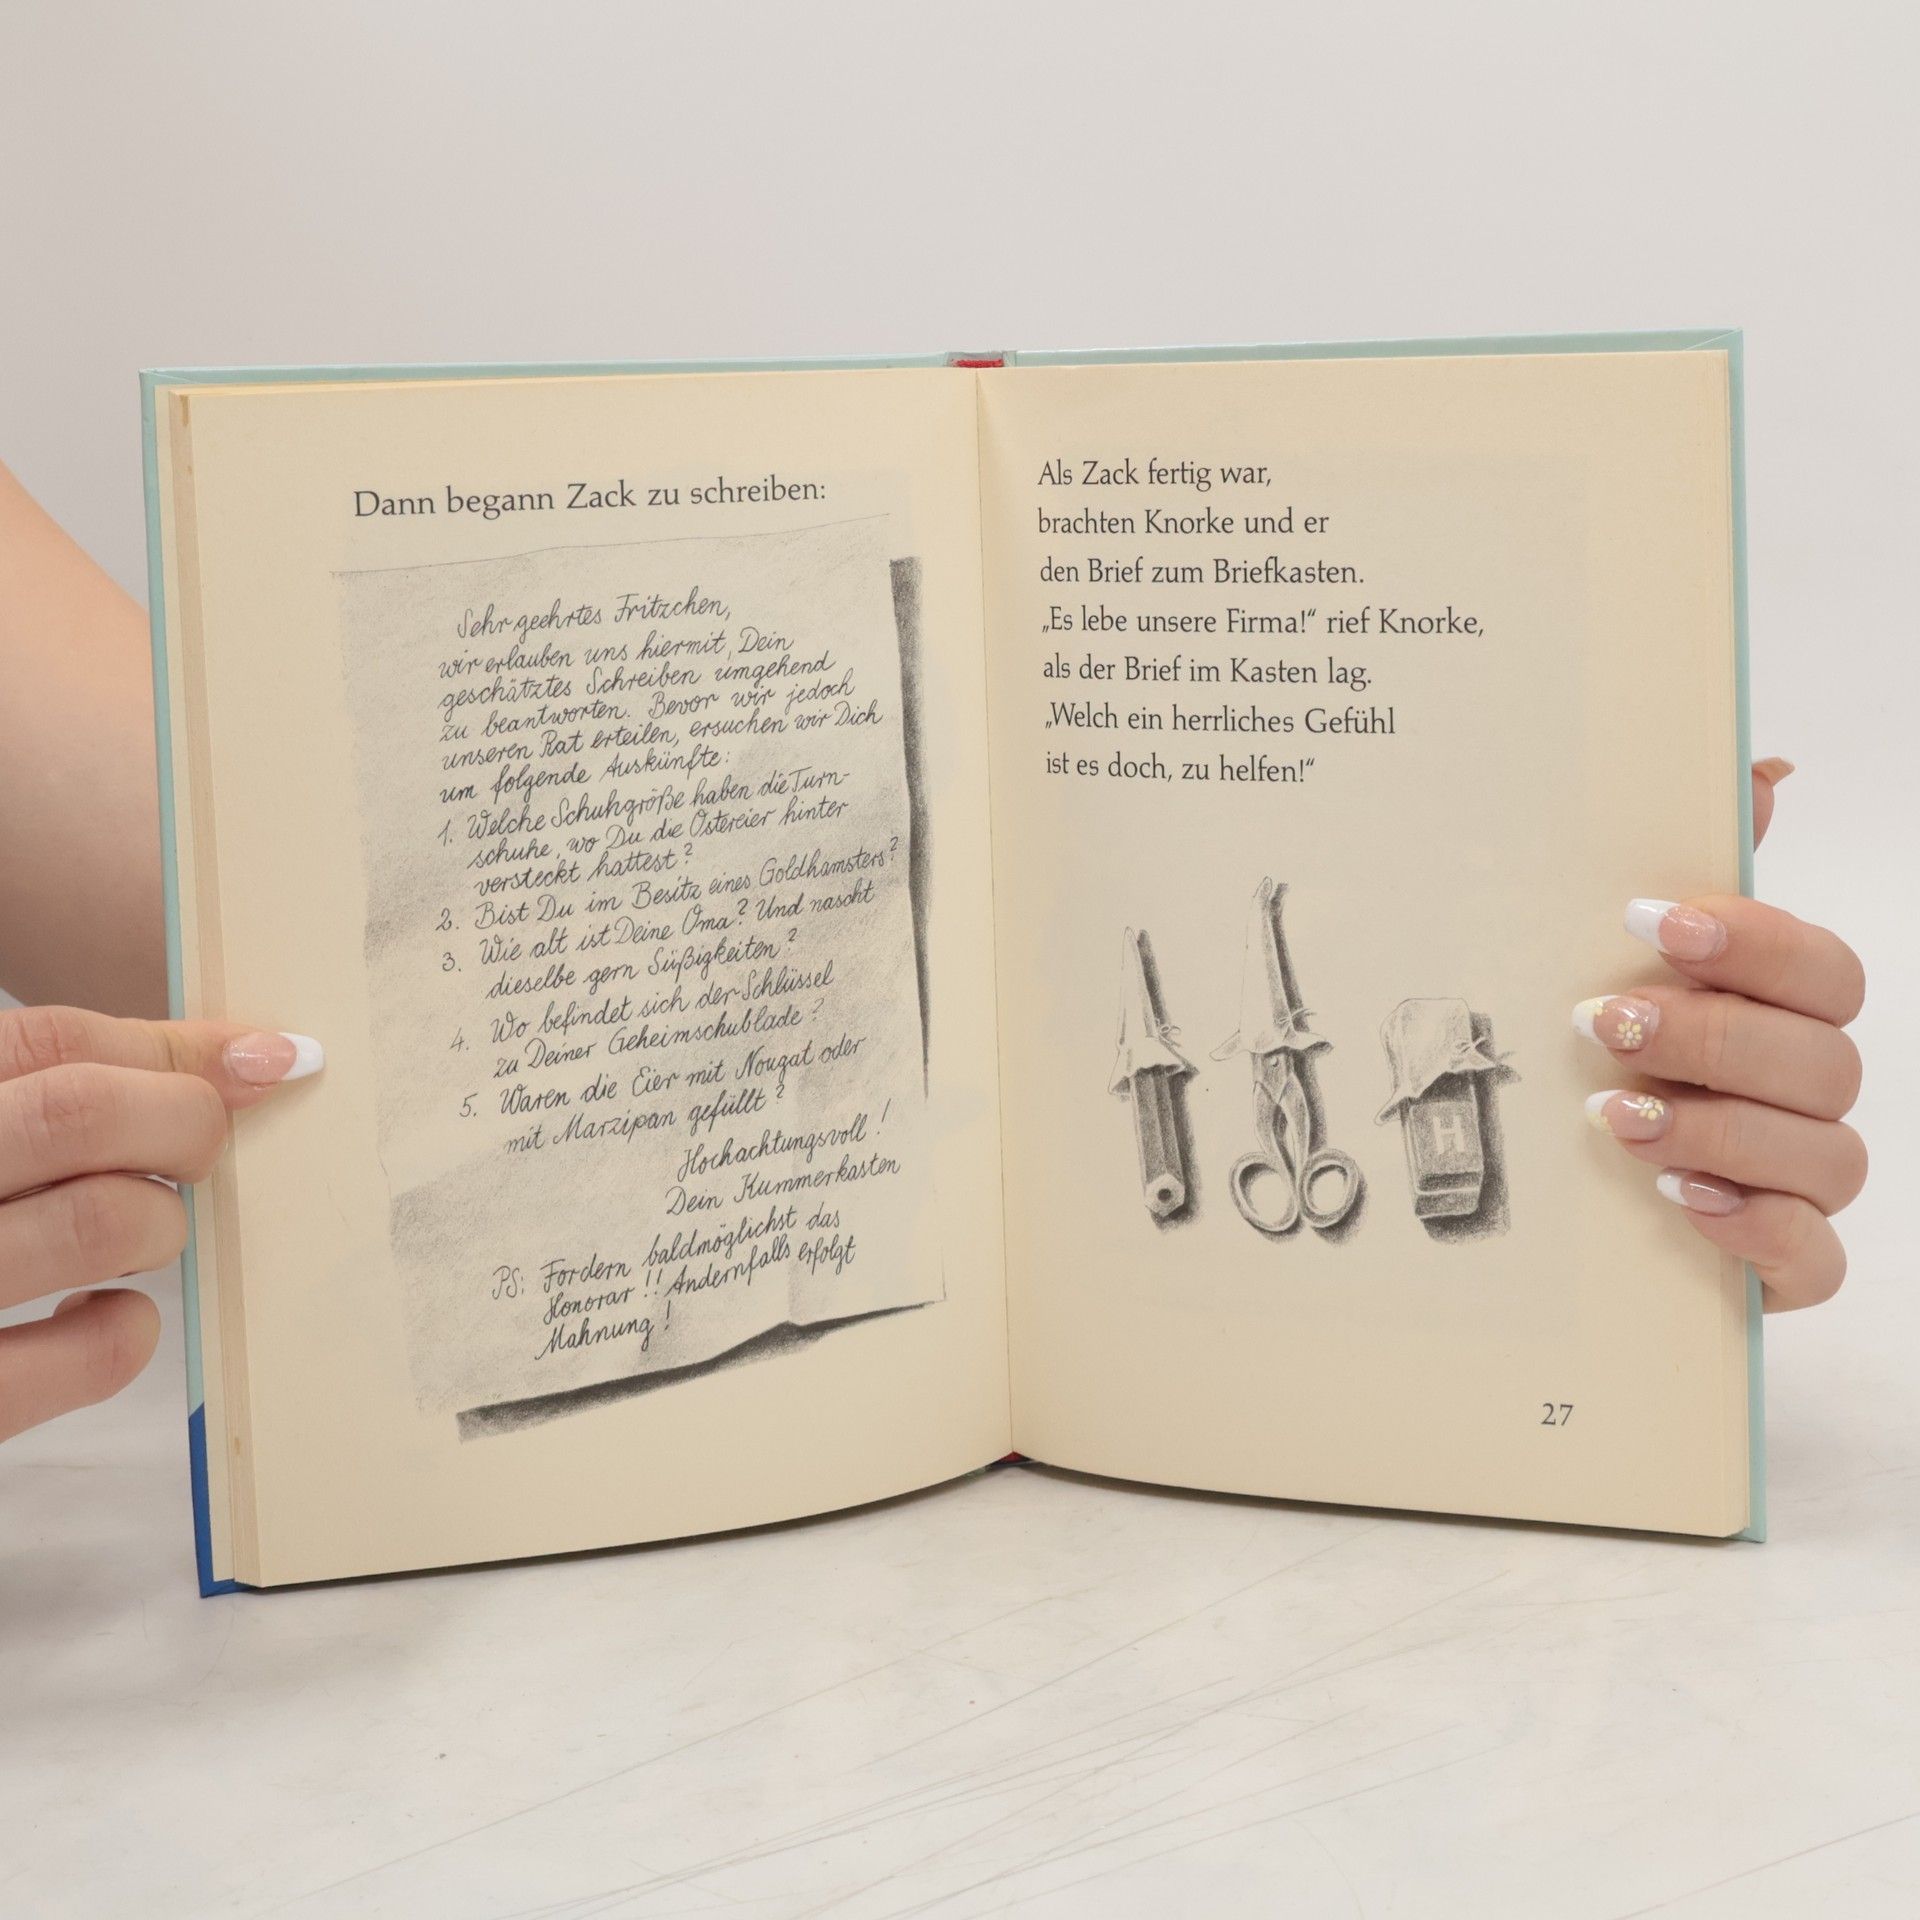 Dann begann Zack zu schreiben:
Sehr geehrtes Fritzchen,
wir erlauben uns hiermit, Dein
geschätztes Schreiben umgehend
zu beantworten. Bevor wir jedoch
unseren Rat erteilen, ersuchen wir Dich
um folgende Auskünfte:
1. Welche Schuhgröße haben die Turn-
schuhe, wo Du die Ostereier hinter
versteckt hattest?
2. Bist Du im Besitz eines Goldhamsters?
3. Wie alt ist Deine Oma? Und nascht
dieselbe gern Süßigkeiten?
4. Wo befindet sich der Schlüssel
zu Deiner Geheimschublade?
5. Waren die Eier mit Nougat oder
mit Marzipan gefüllt?
Hochachtungsvoll!
Dein Kummerkasten
PS: Fordern baldmöglichst das
Honorar!! Andernfalls erfolgt
Mahnung!
Als Zack fertig war,
brachten Knorke und er
den Brief zum Briefkasten.
„Es lebe unsere Firma!“ rief Knorke,
als der Brief im Kasten lag.
„Welch ein herrliches Gefühl
ist es doch, zu helfen!“
H
27